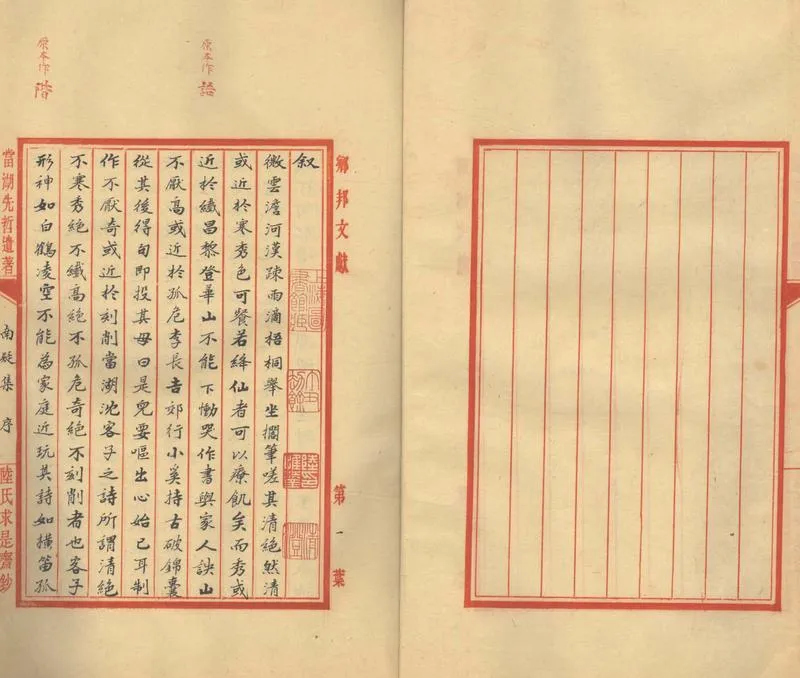 原本作 語
原本作 階
鄉邦文獻 第一葉
叙
微雲澹河漢踈雨滴梧桐舉坐擱筆嗟其清絕然清
或近於寒秀色可餐若絳仙者可以療飢矣而秀或
近於纖昌黎登華山不能下慟哭作書與家人訣山
不厭高或近於孤危李長吉郊行小奚持古破錦囊
從其後得句即投其母曰是兒要嘔出心始已耳制
作不厭奇或近於刻削當湖沈客子之詩所謂清絕
不寒秀絕不纖高絕不孤危奇絕不刻削者也客子
形神如白鶴凌空不能為家庭近玩其詩如橫笛孤
當湖先哲遺著 南疑集 序 陸氏求是齋鈔
上海圖書館藏